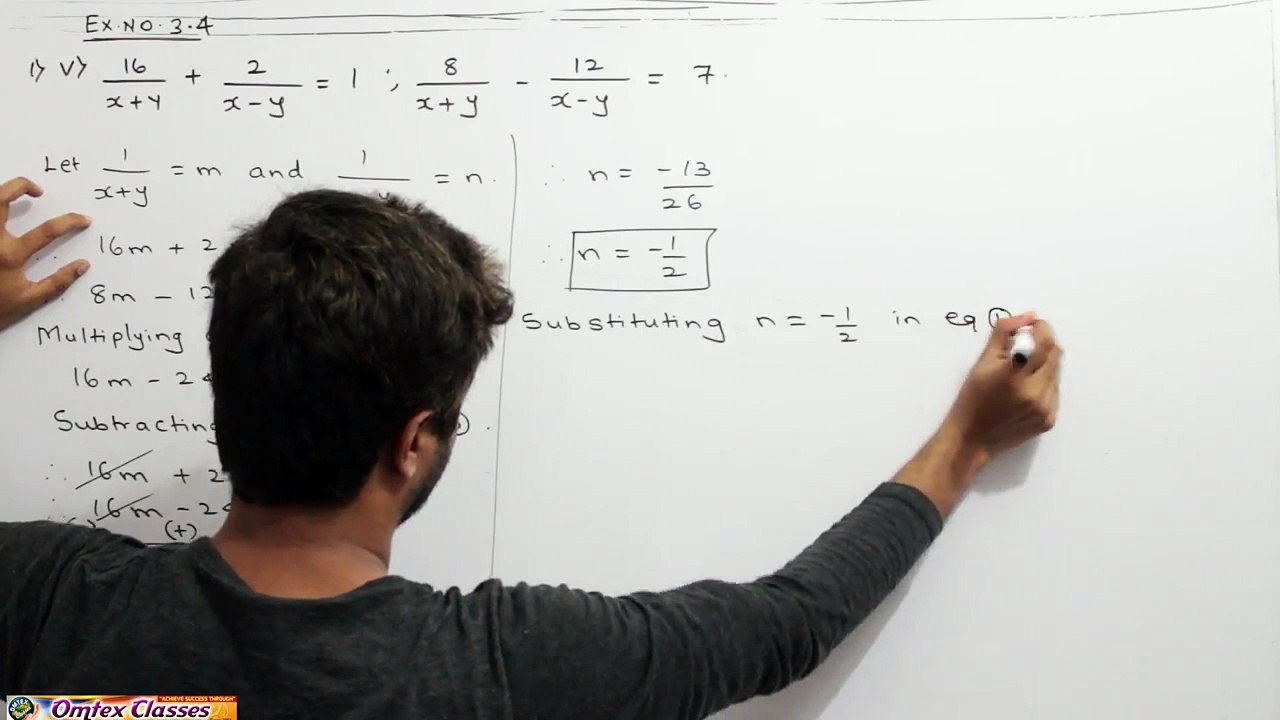 EX.NO.3.4
1) V) 16/(x+y) + 2/(x-y) = 1 ; 8/(x+y) - 12/(x-y) = 7.
Let 1/(x+y) = m and 1/ = n.
16m + 2
8m - 12
Multiplying
16m - 2
Subtracting
∴ 16m + 2
16m - 2
(+)
∴ n = -13/26
∴ n = -1/2
Substituting n = -1/2 in eq ①
"ACHIEVE SUCCESS THROUGH"
OMTEX
Omtex Classes